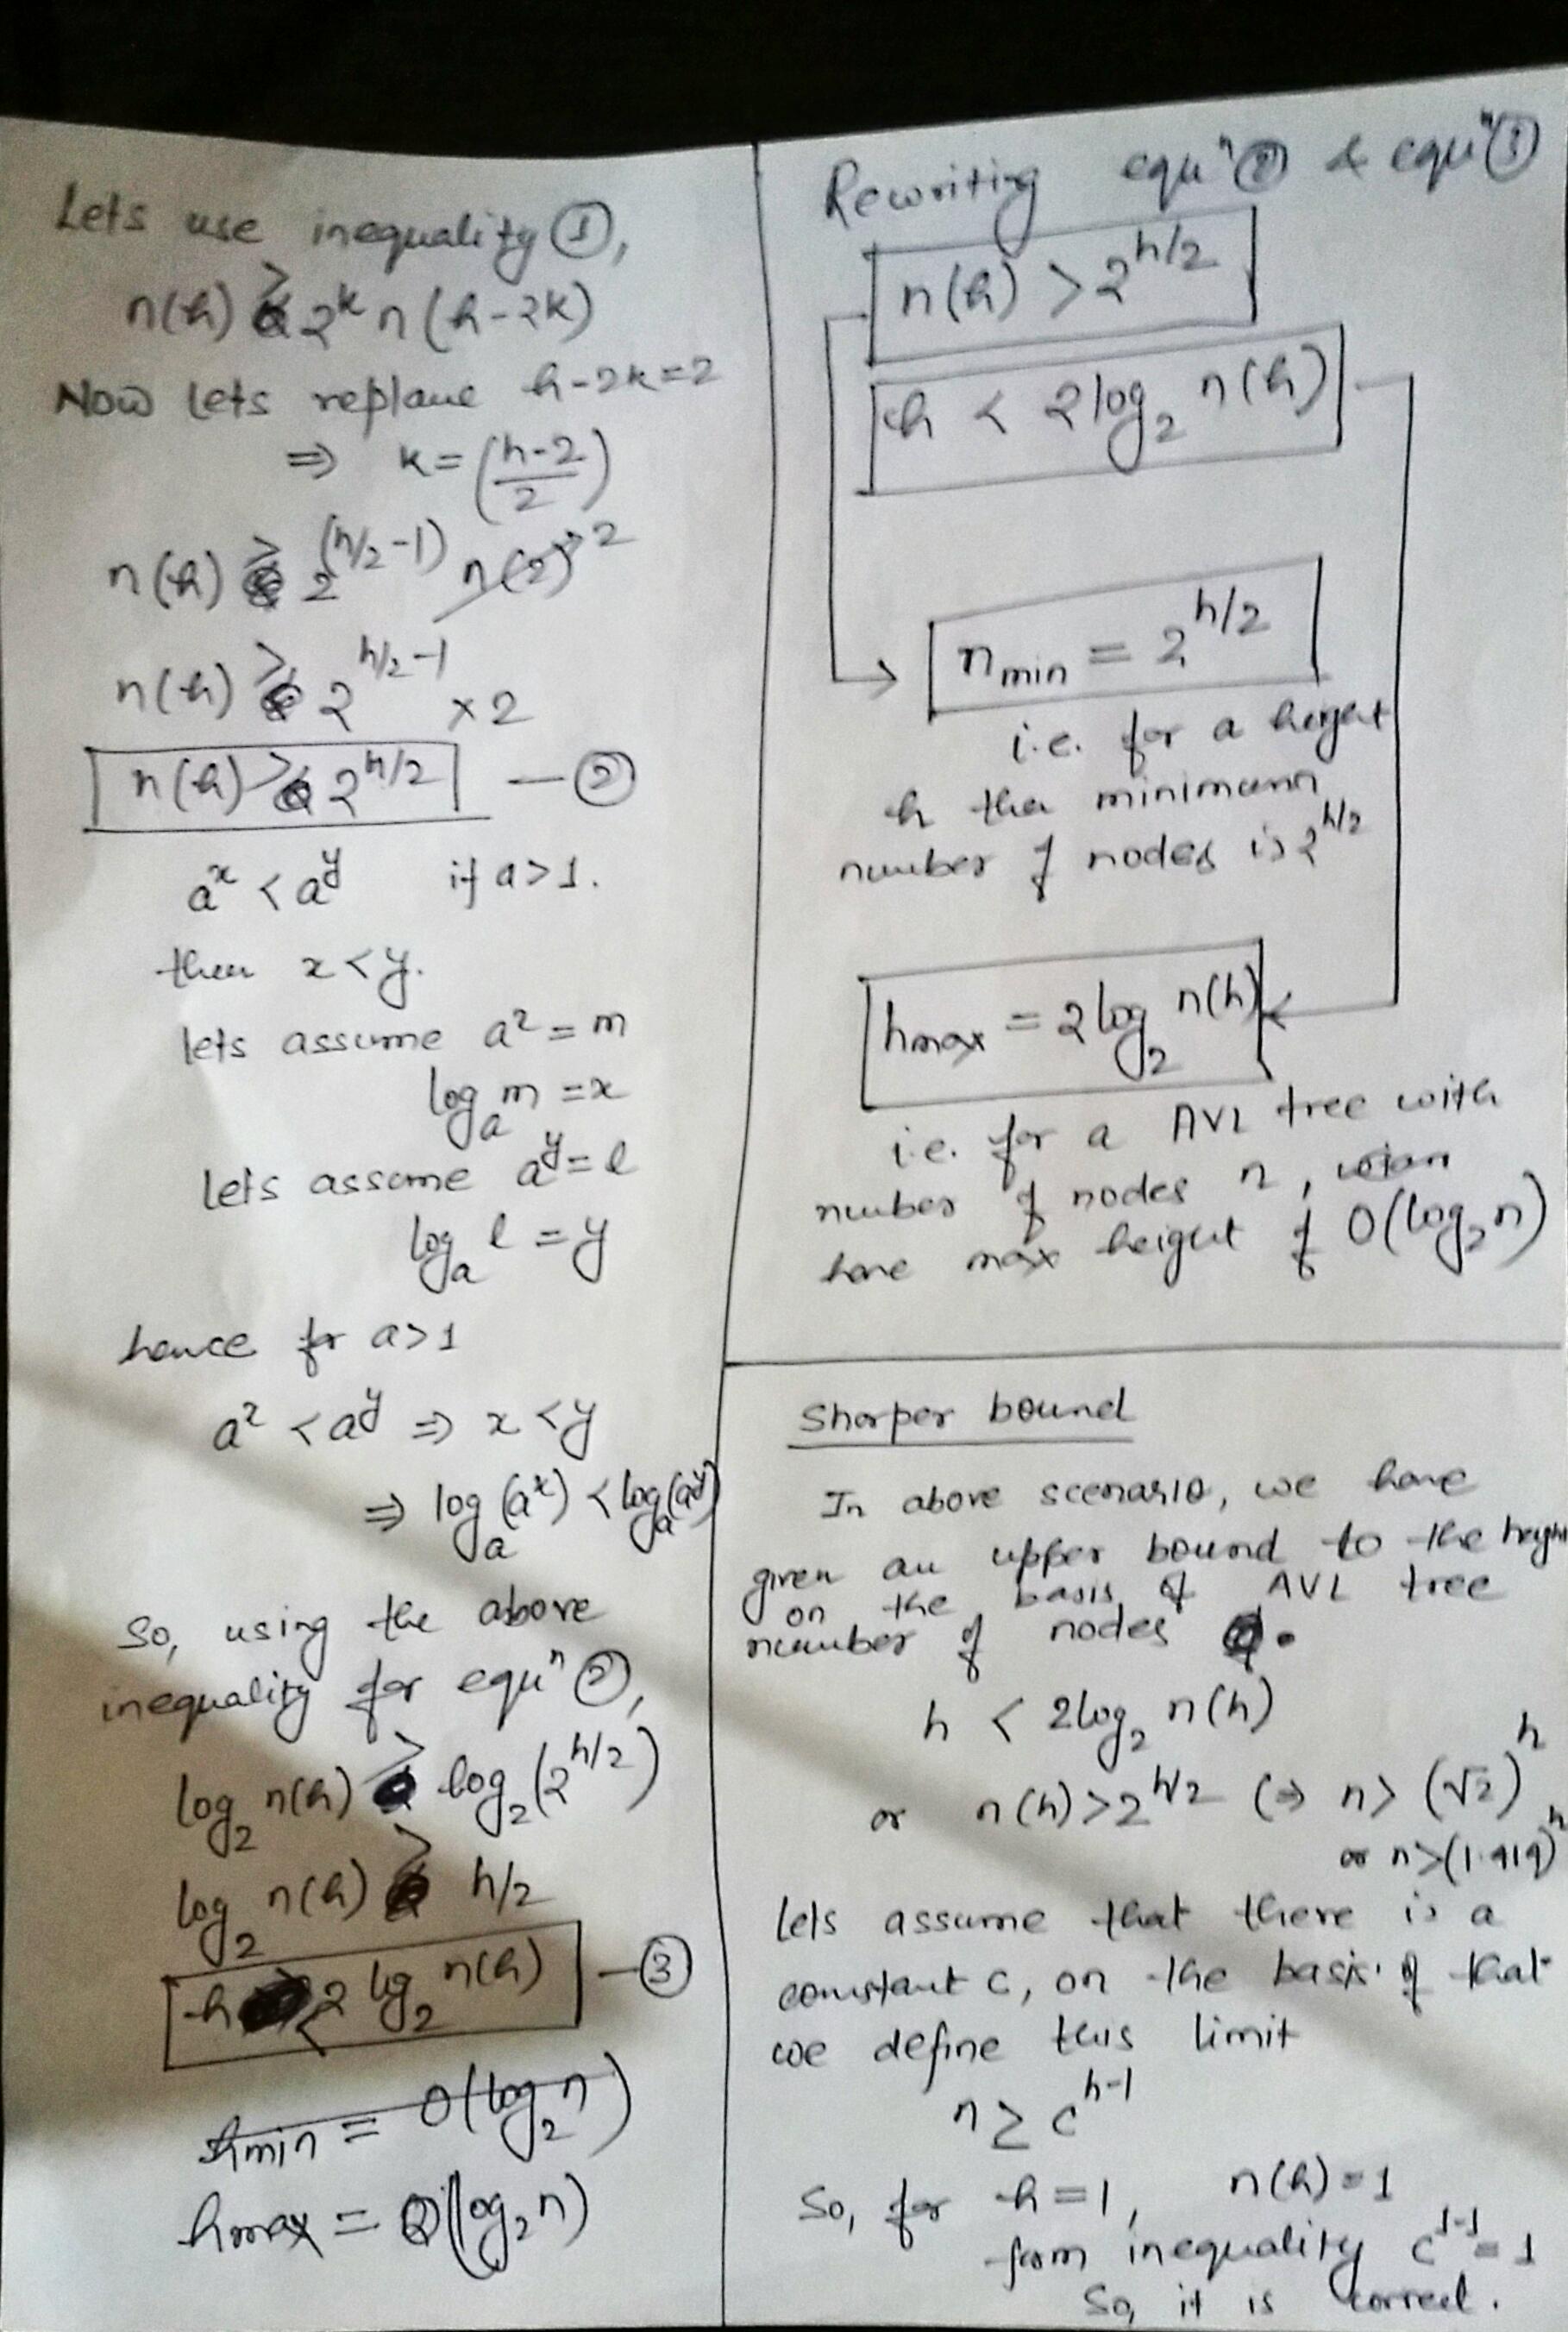 Lets use inequality ①,
n(h) > 2^k n(h-2k)
Now lets replace h-2k=2
⇒ k = (h-2 / 2)
n(h) > 2^(h/2-1) n(2)→2
n(h) > 2^h/2-1 × 2
n(h) > 2^h/2 — ②
a^x < a^y if a>1.
then x<y.
lets assume a^x = m
log_a m = x
Lets assume a^y = l
log_a l = y
hence for a>1
a^x < a^y ⇒ x<y
⇒ log_a (a^x) < log_a (a^y)
So, using the above
inequality for equ^n ②,
log_2 n(h) > log_2 (2^h/2)
log_2 n(h) > h/2
h < 2 log_2 n(h) — ③
hmin = O(log_2 n)
hmax = O(log_2 n)
Rewriting equ^n ② & equ^n ③
n(h) > 2^h/2
h < 2 log_2 n(h)
n min = 2^h/2
i.e. for a height
h the minimum
number of nodes is 2^h/2
hmax = 2 log_2 n(h)
i.e. for a AVL tree with
number of nodes n,
have max height of O(log_2 n)
Sharper bound
In above scenario, we have
given an upper bound to the heigh
on the basis of AVL tree
number of nodes .
h < 2 log_2 n(h)
or n(h) > 2^h/2 (⇒ n > (√2)^h
or n > (1.414)^h
Lets assume that there is a
constant c, on the basis of that
we define this limit
n ≥ c^h-1
So, for h=1, n(h)=1
from inequality c^1-1 = 1
So, it is correct.